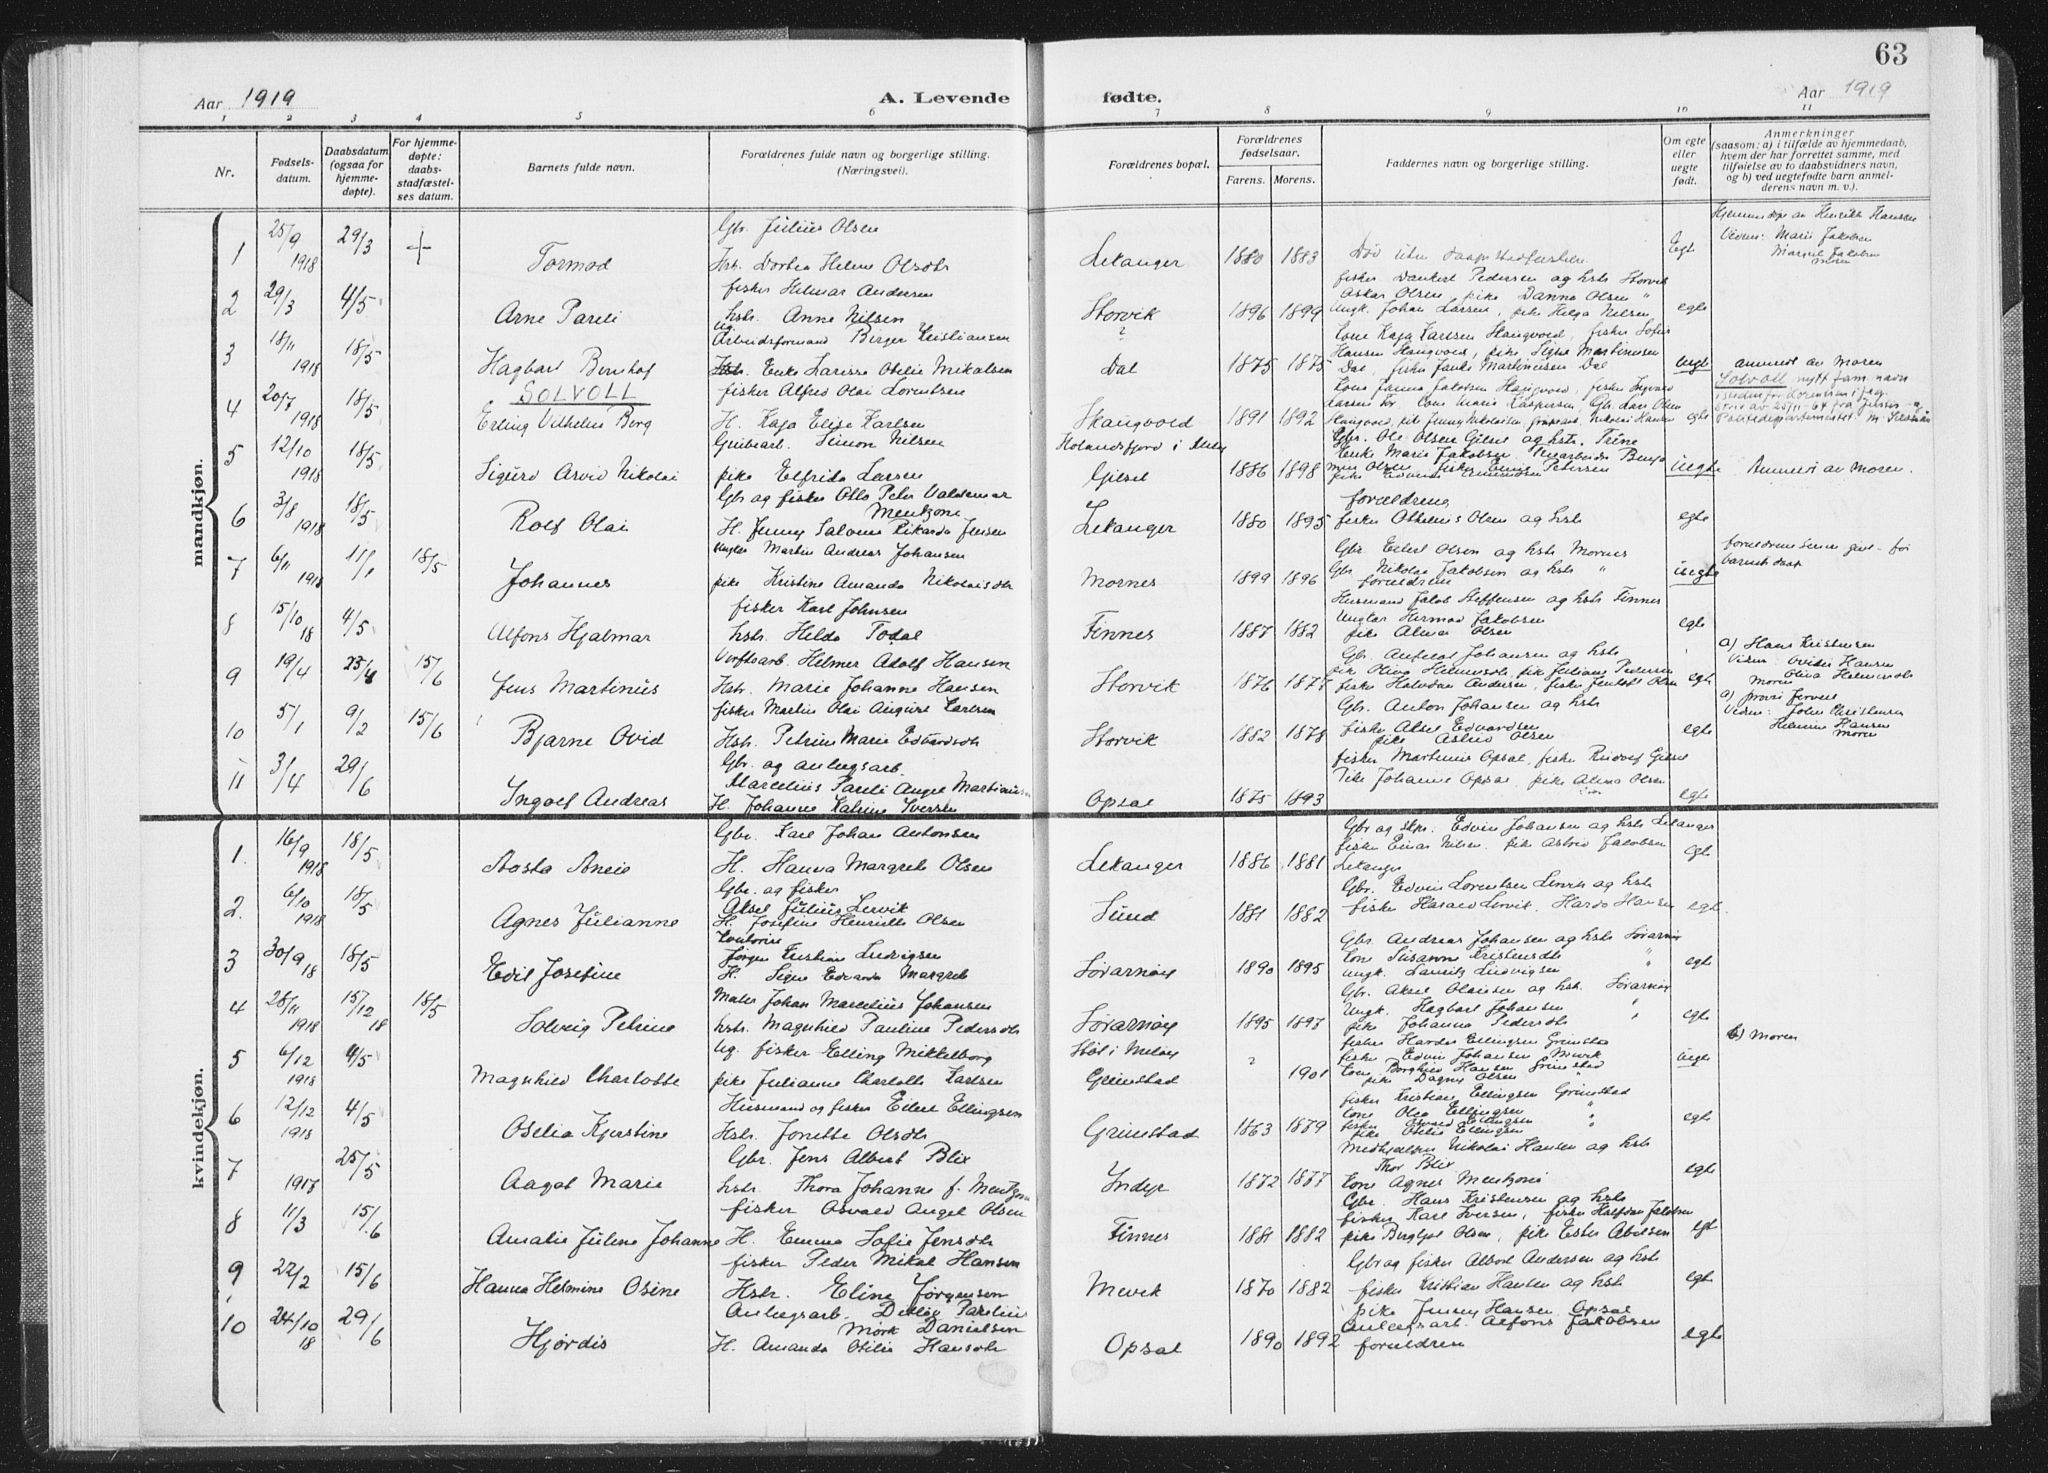 63
Aar 1919
A. Levende
fødte.
Aar 1919
1 2 3 4 5 6 7 8 9 10 11
Nr.
Fødsels-
datum.
Daabsdatum
(ogsaa for
hjemme-
døpte).
For hjemme-
døpte:
daabs-
stadfæstel-
ses datum.
Barnets fulde navn.
Forældrenes fulde navn og borgerlige stilling.
(Næringsvei).
Forældrenes bopæl.
Forældrenes
fødselsaar.
Farens. Morens.
Faddernes navn og borgerlige stilling.
Om egte
eller
uegte
født.
Anmerkninger
(saasom: a) i tilfælde av hjemmedaab,
hvem der har forrettet samme, med
tilføielse av to daabsvidners navn,
og b) ved uegtefødte barn anmel-
derens navn m. v.).
mandkjøn.
Gbr. Julius Olsen
1 25/9 1918 29/3 + Tormod Hst. Dortea Helene Olsdtr Lekanger 1880 1883 Død uten daapstadfæstelse Egte
Hjemmedøpt av Henrikke Hansen
Vidner: Marie Jakobsen
Margrete Jakobsen
Moren
fisker Helmer Andersen
2 29/3 4/5 Arne Pareli hstr. Anne Nilsen Storvik 1896 1899 egte
fisker Dankert Pedersen og hstr Storvik
Oskar Olsen pike Danna Olsen "
Ungk. Johan Larsen, pike Helga Nilsen
ug. Arbeidsformand Berger Kristiansen ?
3 18/11 1918 18/5 Hagbart Bernhof Hst. Enke Larisse Otelie Mikalsen Dal 1875 1875 uegte anmeldt av moren
Kone Kaja Karlsen Skaugvold, fisker Sofus
Hansen Haugvold, pike Signe Martinussen
Dal, fisker Jentz Martinussen Dal
SOLVOLL
fisker Alfred Olai Lorentsen
4 20/7 1918 18/5 Erling Vilhelm Borg H. Kaja Elise Karlsen Skaugvold 1891 1892 egte
Solvoll nytt fam. navn
istedenfor Lorentsen ifølg.
skriv av 20/11-64 fra Justis- og
Politidepartementet.
Grubearb. Simon Nilsen Holandsfjord i
5 12/10 1918 18/5 Sigurd Arvid Nikolai pike Elfrida Larsen Gilset 1886 1898 uegte Anmeldt av moren.
Gbr. Ole Olsen Gilset og hstr. Trine
Enke Marie Jakobsen
Gbr og fisker Otto Peter Valdemar
Mentzoni
6 3/8 1918 18/5 Rolf Olai H. Jenny Salome Rikarda Jensen Lekanger 1880 1895 egte
forældrene
fisker Othelius Olsen og hstr
Ungkar Martin Andreas Johansen
7 6/11 1918 11/1 18/5 Johannes pike Kristine Amanda Nikolaisdtr Mornes 1899 1896 uegte
Gbr. Eilert Olsen og hstr Mornes
Gbr Nikolai Jakobsen og hstr "
forældrene
forældrene senere givt - før
barnets daap
fisker Karl Johnsen
8 15/10 18 4/5 Alfons Hjalmar hstr. Helda Todal Finnes 1887 1882 egte
Husmand Jakob Steffensen og hstr Finnes
Ungkar Hermod Jakobsen
pike Alma Olsen
Verftsarb. Helmer Adolf Hansen
9 19/4 23/4 15/6 Jens Martinius Hstr. Marie Johanne Hansen Storvik 1876 1877 egte
Gbr. Anfelot Johansen og hstr
pike Oliva Helmersdtr, pike Juliane Pedersen
fisker Halvdan Andersen, fisker Jentoft Olsen
a) Hans Kristensen
Vidner: Ovidia Hansen
Oliva Helmersdtr
Moren
fisker Martin Olai August Karlsen
10 5/1 9/2 15/6 Bjarne Ovid Hstr. Petrine Marie Edvardsdtr Storvik 1882 1878 egte
Gbr. Anton Johansen og hstr
fisker Aksel Edvardsen
pike Astrid Olsen
a) provst Jervell
Vidner: John Christensen
Helmine Hansen
Moren
Gbr. og anlægsarb.
Marcelius Pareli Angel Martinussen
11 3/4 29/6 Ingolf Andreas H. Johanne Katrine Iversen Opsal 1875 1893 egte
fisker Martinus Opsal, fisker Rudolf Gilset
Pike Johanne Opsal, pike Alma Olsen
kvindekjøn.
Gbr. Karl Johan Antonsen
1. 16/9 1918 18/5 Aasta Aneie H. Hanna Margrete Olsen Lekanger 1886 1881 egte
Gbr og skpr. Edvin Johansen og hstr Lekanger
fisker Einar Nilsen. pike Astrid Jakobsen
Lekanger
Gbr. og fisker
Aksel Julius Lervik
2. 6/10 1918 18/5 Agnes Julianne H. Josefine Henriette Olsen Sund 1881 1882 egte
Gbr. Edvin Lorentsen Lervik og hstr
fisker Harald Lervik. Harda Hansen
Kontorist
Jørgen Kristian Ludvigsen
3 30/9 18 18/5 Edil Josefine H. Signe Edvarda Margrete Sørarnøy 1890 1895 egte
Gbr. Andreas Johansen og hstr Sørarnøy
Kone Susanne Kristensdtr "
ungk. Lauritz Ludvigsen "
Maler Johan Marcelius Johansen
4 28/11 1918 15/12 18 18/5 Solveig Petrine hstr. Magnhild Pauline Pedersdtr Sørarnøy 1895 1897 egte
Gbr. Aksel Olaisen og hstr. Sørarnøy
Ungk. Hagbart Johansen
pike Johanna Pedersdtr "
Ug. fisker Elling Mikkelborg Støt i Meløy
5 6/12 1918 4/5 Magnhild Charlotte pike Julianne Charlotte Karlsen Grimstad ? 1901 uegte b) Moren
fisker Hardar Ellingsen Grimstad
fisker Edvin Johansen Mevik
Kone Borghild Hansen Grimstad
pike Dagny Olsen "
Husmand og fisker Eilert Ellingsen
6 12/12 1918 4/5 Oselia Kjerstine Hstr. Jonette Olsdtr Grimstad 1863 1879 egte
fisker Kristian Ellingsen Grimstad
Kone Olea Ellingsen "
fisker Edvard Ellingsen "
pike Otelie Ellingsen
Gbr. Jens Albert Blix
7 1917 25/5 Aagot Marie hstr. Thora Johanne f. Mentzoni Indyr 1872 1877 egte
Medhjælper Nikolai Hansen og hstr
Thor Blix
Kone Agnes Mentzoni
fisker Osvald Angel Olsen
8 11/3 15/6 Amalie Julene Johanne H. Emma Sofie Jensdtr Finnes 1881 1882 egte
Gbr Hans Kristensen og hstr
fisker Karl Iversen, fisker Halfdan Jakobsen
pike Bergljot Olsen, pike Ester Abelsen
fisker Peder Mikal Hansen
9 22/2 15/6 Hanna Helmine Osine Hstr. Eline Jørgensen Mevik 1870 1882 egte
Gbr og fisker Albert Andersen og hstr
fisker Kristian Hansen og hstr
pike Jenny Hansen Opsal
Anlægsarb. Detlev Pareluis
Mørk Danielsen
10 24/10 18 29/6 Hjørdis H. Amanda Otilie Hansdtr Opsal 1890 1892 egte
Anlægsarb. Alfons Jakobsen
forældrene